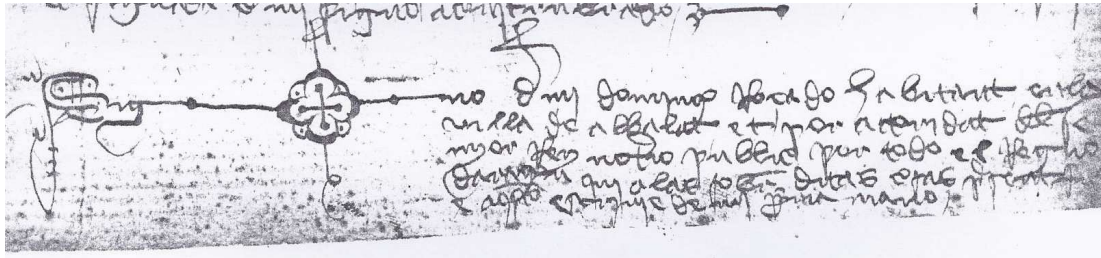 signada e mi signo acostumbrado
Sig no d mi domingo Rocado habitant en la
villa de albalat et por actoridat del se
nyor Rey notro public por todo el Regno
daragon qui a las sobre ditas cosas present
e aquesto escriuie de mi propria mano